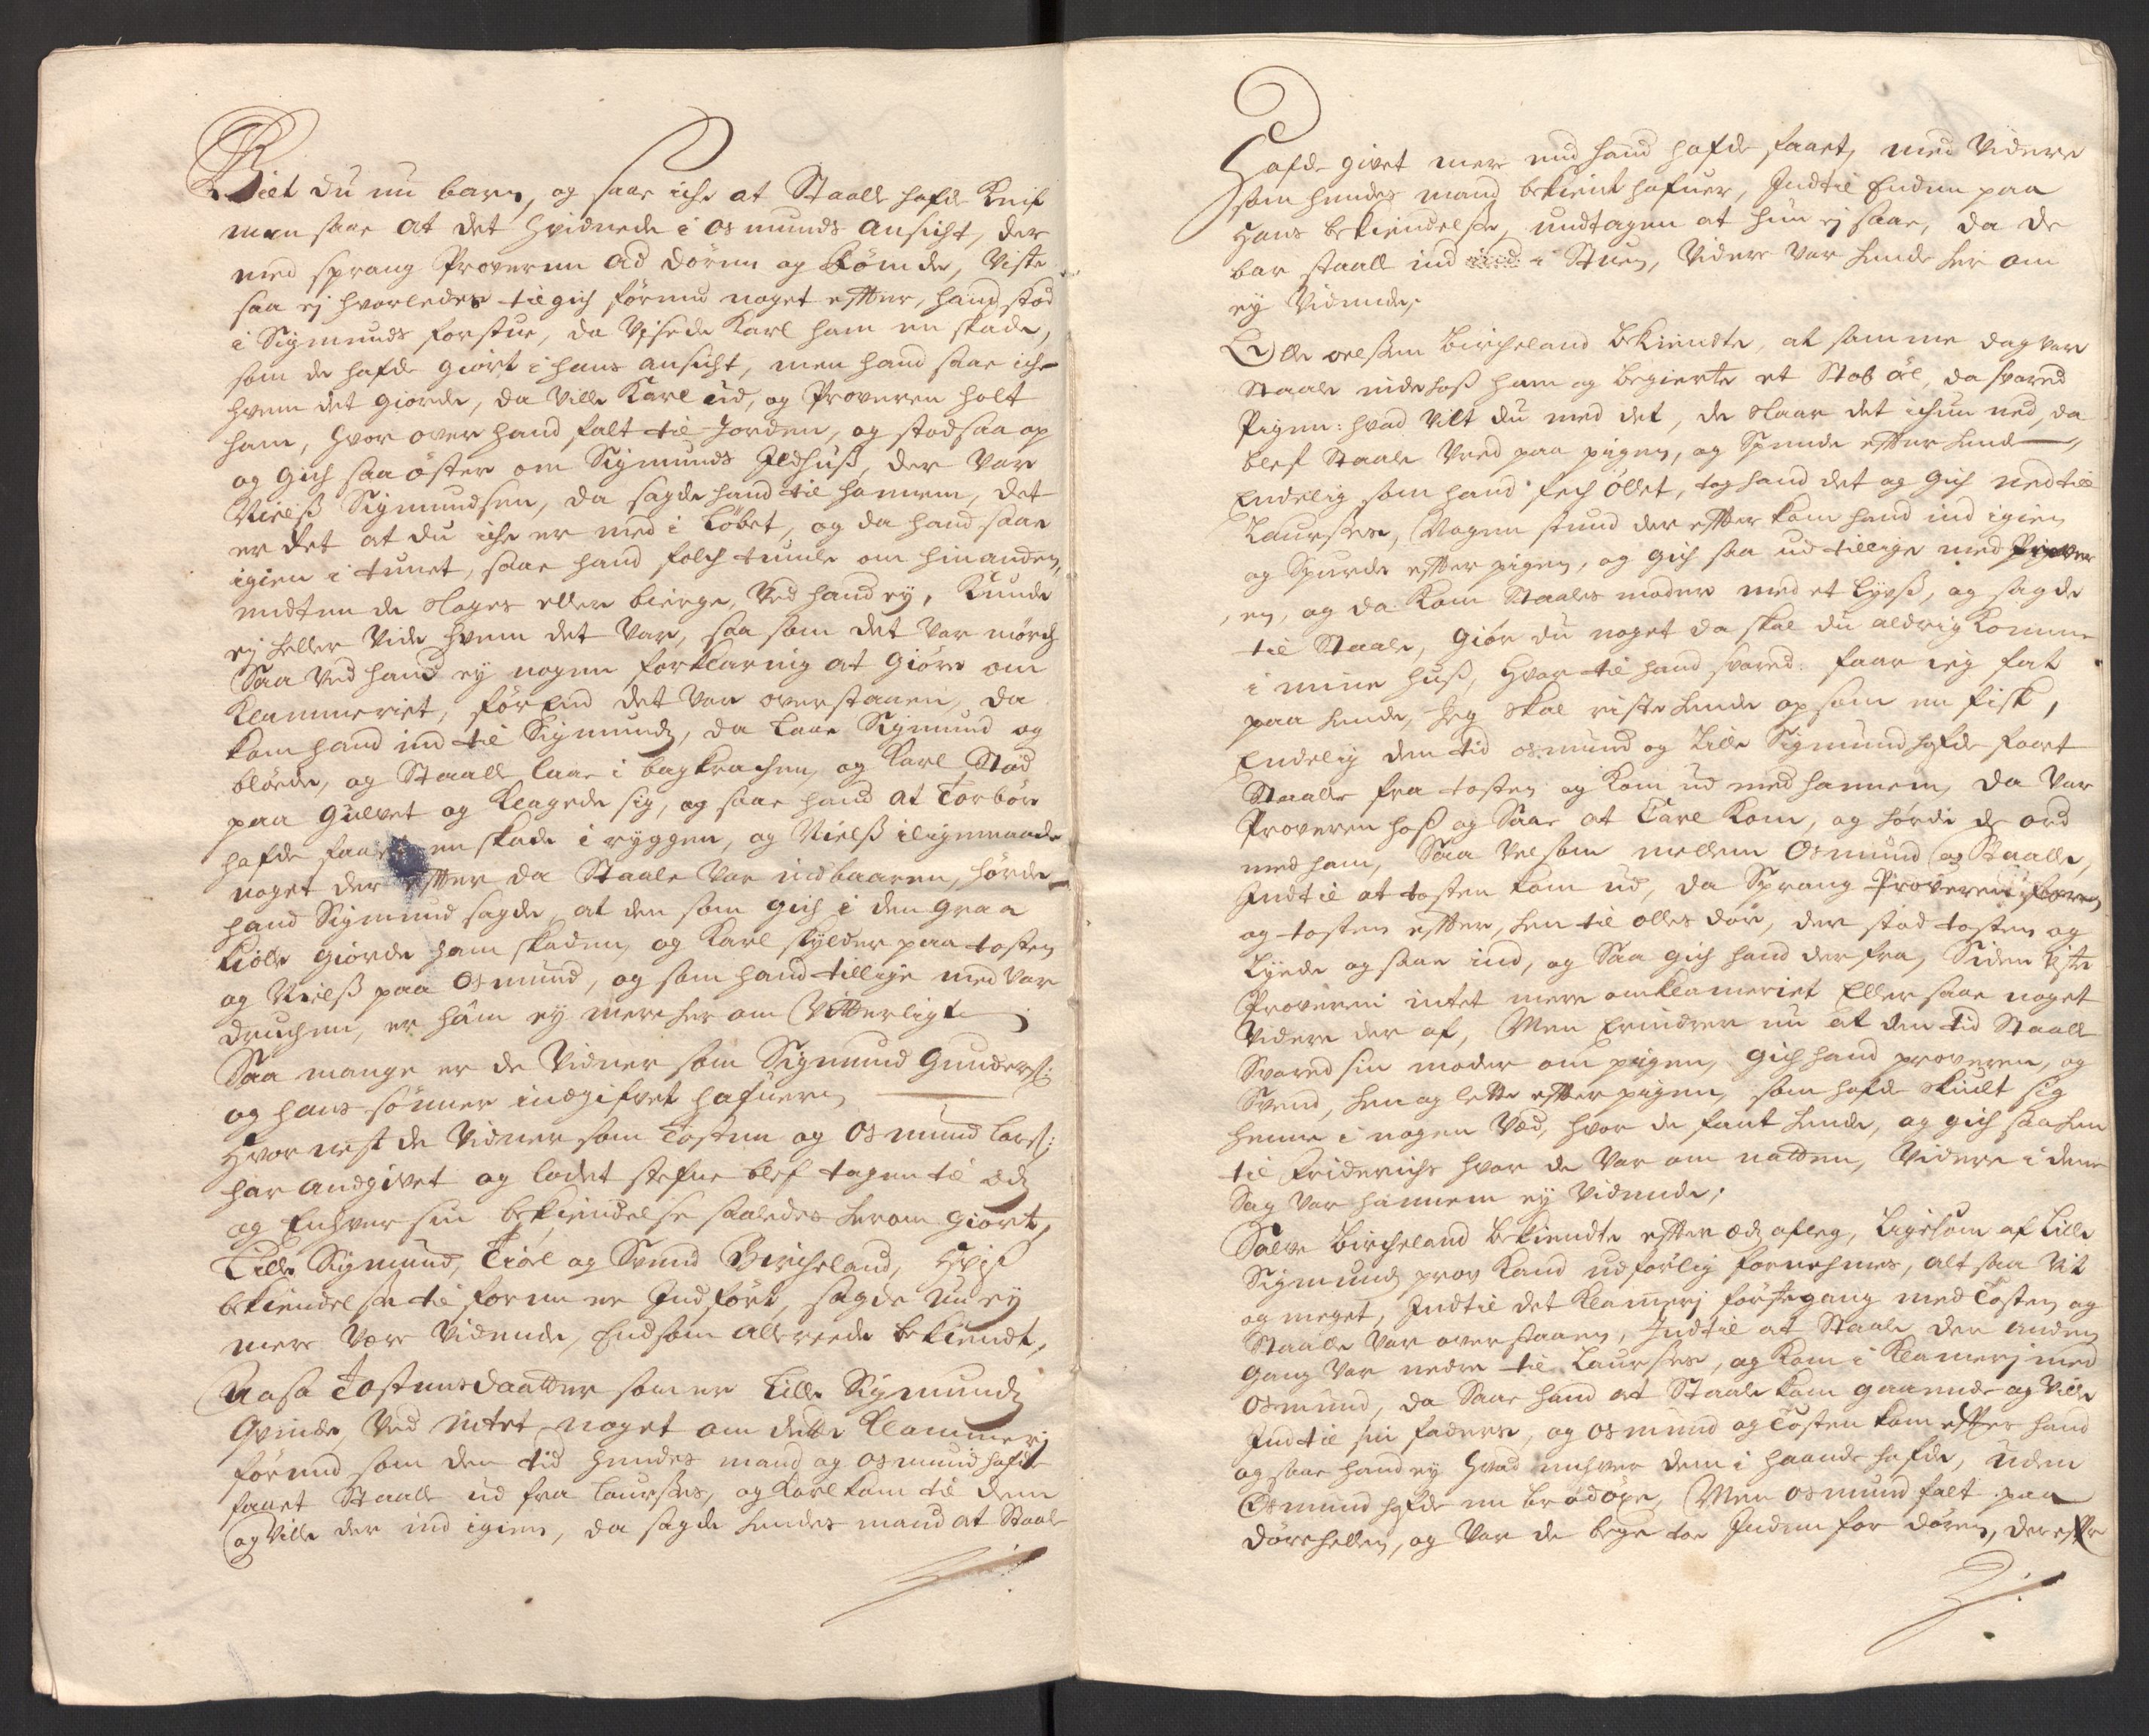 Vilt du nu barn, og saae iche at Staale hafde Knif
men saae at det Hvidnede i Osmunds Ansicht, der
med sprang Proveren ad dören og Römde, Viste
saa ej hvorledes tilgich förend noget effter, hand stod
i Sigmunds forstue, da Visede Karl ham en skade,
som de hafde giort i hans ansicht, men hand saae iche
hvem det giorde, da Ville Karl ud, og Proveren holt
ham, hvor over hand falt til Jorden, og stod saa op
og gich saa öster om Sigmunds Ildhuß, der Var
Nielß Sigmundsen, da sagde hand til hannem, det
er det at du iche er med i Löbet, og da hand saae
igien i tunet, saae hand folch tumle om hinanden,
endten de sloges eller bierge, Ved hand ey, Kunde
ej heller Vide hvem det Var, saa som det Var mörch
Saa Ved hand ey nogen forklaring at giöre om
Klammeriet, för End det Var overstaaen, da
kom hand ind til Sigmunds, da laae Sigmund og
blöede, og Staale laae i bagkrachen, og Karl stod
paa gulvet og klagede sig, og saae hand at Torbör
hafde faaet en skade i ryggen, og Nielß iligemaade
noget der effter da Staale Var indbaaren, hörde
hand Sigmund sagde, at den som gich i den graa
Kiole giorde ham skaden, og Karl skylder paa tosten
og Nielß paa Osmund, og som hand tillige med Var
druchen, er ham ey mere her om Vitterligt
Saa mange er de Vidner som Sigmund Gunderß:
og hans sönner indgifvet hafuer,
Hvor nest de Vidner som Tosten og Osmund Larß:
har andgivet og ladet stefne blef tagen til æd,
og Enhver sin bekiendelse saaledes herom giort,
Lille Sigmund, Tiöl og Svend Bircheland, Hvis
bekiendelse til forn er Indfört, sagde nu ey
mere Være Vidende, End som allereede bekiendt,
Aasa Tostensdaatter som er Lille Sigmunds
Qvinde, Ved intet noget om dette Klammerj
förend som den tid hendes mand og osmund hafde
faaet Staale ud fra Laurses, og Karl kom til dem
og Ville der ind igien, da sagde hendes mand at Staale
Hafde givet mere end hand hafde faaet, men Videre
som hendes mand bekient hafuer, Indtil Enden paa
Hans bekiendelse, undtagen at hun ej saae, da de
bar staale ind i Stuen, Videre Var hende her om
ey Vidende,
Olle oelßen Bircheland bekiendte, at samme dag Var
Staale inde hoß ham og begierte et Stob öl, da svared
Pigen: hvad Vilt du med det, du slaar det ichun ned, da
blef Staale Vred paa pigen, og Spende effter hende,
Endelig som hand fech öllet, tog hand det og gich ned til
Laurses, Nogen stund der effter kom hand ind igien
og Spurde effter pigen, og gich saa ud tillige med Prover
en, og da Kom Staales moder med et Lyvß, og sagde
til Staale, giör du noget da skal du aldrig komme
i mine huß, hvor til hand svared: faar ieg fat
paa hende, Jeg skal riste hende op som en fisk,
Endelig den tid osmund og Lille Sigmund hafde faaet
Staale fra tosten og kom ud med hannem, da Var
Proveren hoß og Saae at Carl kom, og hörde de ord
med ham, Saa Vel som mellem Osmund og Staale,
Indtil at tosten kom ud, da Sprang Proveren foren
og tosten effter, hen til olles dör, der stod tosten og
Lyede og saae ind, og Saa gich hand der fra, Siden Viste
Proveren intet mere om klameriet Eller saae noget
Videre der af, Men Erindrer nu at den tid Staale
Svared sin moder om pigen, gich hand proveren, og
Svend, hen og lette effter pigen, som hafde skiult sig
henne i nogen Ved, hvor de fant hende, og gich saa hen
til Friderichs hvor de Var om natten, Videre i denne
Sag Var hannem ey Vidende;
Salve Bircheland bekiendte effter æds afleg, Ligesom af Lille
Sigmunds prov kand udförlig fornehmes, alt saa Vit
og meget, Indtil det klamerj förstegang med Tosten og
Staale Var overstaaen, Indtil at Staale den anden
gang Var nedre til Laurses, og kom i Klamerj med
Osmund, da Saae hand at Staale kom gaaende og Ville
Ind til sin faders, og osmund og Tosten kom effter hand
og saae hand ey hvad enhver dem i haande hafde, uden
Osmund hafde en brödöxe, Men osmund falt paa
dörehellen, og Var de bege toe Inden for dören, der effter